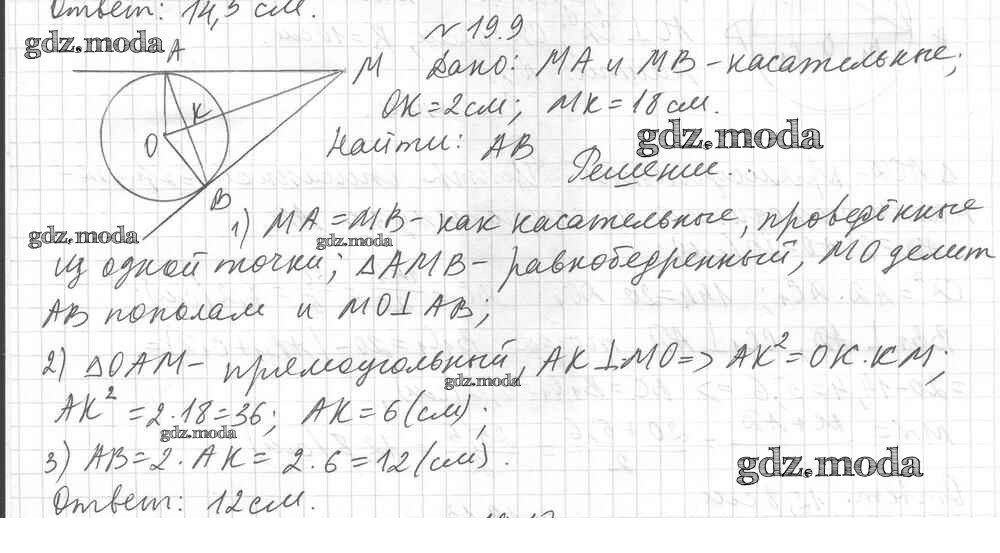 Ответ: 14,5 см.
№ 19.9
gdz.moda
A
M
Дано: MA и MB - касательные;
K
OK = 2 см; MK = 18 см.
gdz.moda
O
Найти: AB
Решение.
B
gdz.moda
1) MA = MB - как касательные, проведённые
gdz.moda
из одной точки; △AMB - равнобедренный, MO делит
AB пополам и MO⊥AB;
2) △OAM - прямоугольный, AK⊥MO => AK² = OK·KM;
gdz.moda
AK² = 2·18 = 36; AK = 6 (см);
gdz.moda
3) AB = 2·AK = 2·6 = 12 (см).
gdz.moda
Ответ: 12 см.